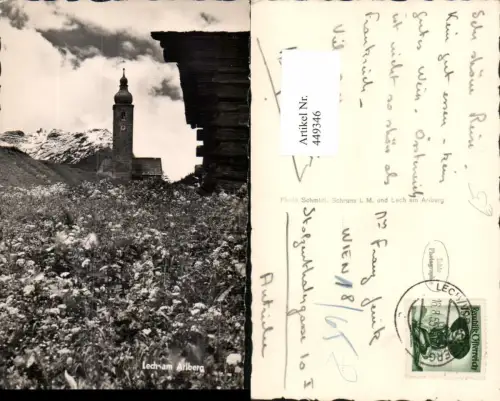 Lech am Arlberg
Sehr schöne Reise.
Kein gut essen - kein
gutes Wein. Österreich
ist nicht so schön als
Frankreich -
Artikel Nr.
449346
Photo Schmidt, Schruns i. M. und Lech am Arlberg
Echte
Photographie
Mr Franz Jenik
WIEN 18
/65
Stolzenthalergasse 10 I
Autriche
LECH
Republik Österreich